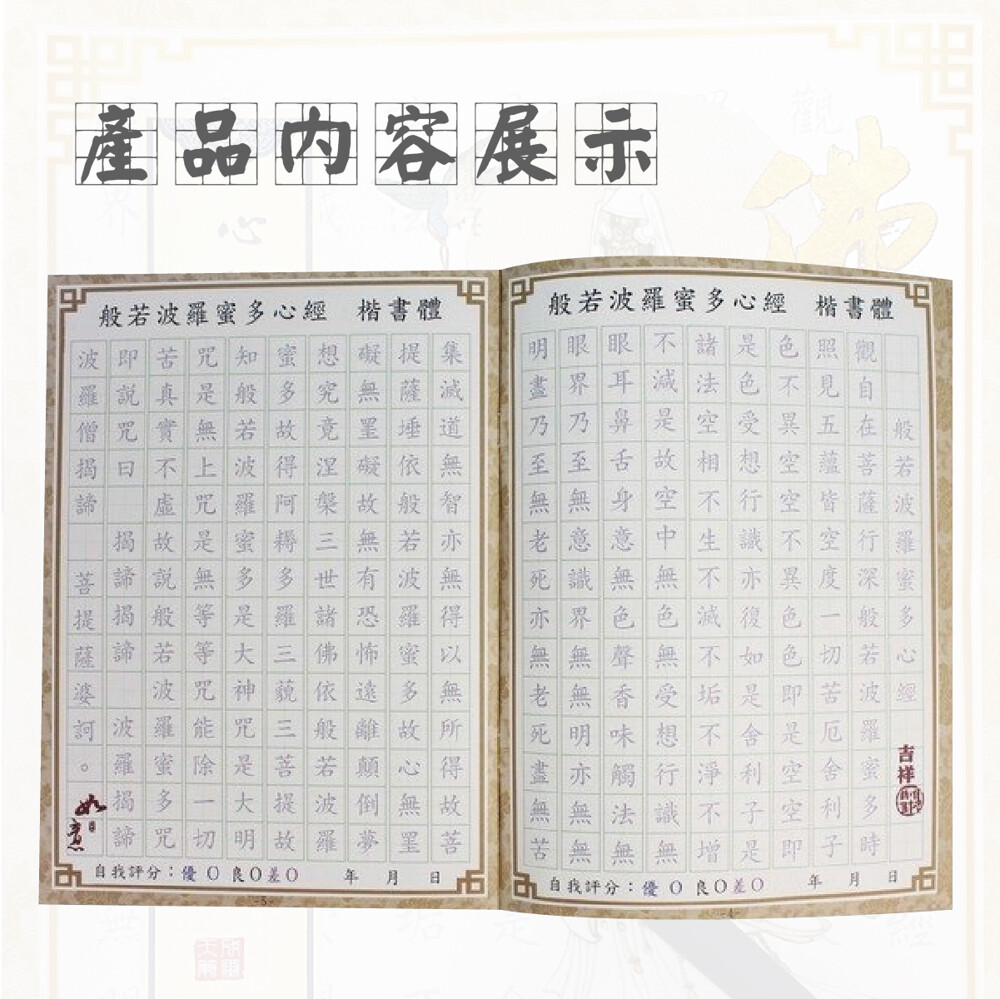 產品內容展示
觀
佛
心
般若波羅蜜多心經 楷書體
般若波羅蜜多心經
觀自在菩薩行深般若波羅蜜多時
照見五蘊皆空度一切苦厄舍利子
色不異空空不異色色即是空空即
是色受想行識亦復如是舍利子是
諸法空相不生不滅不垢不淨不增
不減是故空中無色無受想行識無
眼耳鼻舌身意無色聲香味觸法無
眼界乃至無意識界無無明亦無無
明盡乃至無老死亦無老死盡無苦
吉祥
自我評分：優 O 良O差O 年 月 日
-4-
般若波羅蜜多心經 楷書體
集滅道無智亦無得以無所得故菩
提薩埵依般若波羅蜜多故心無罣
礙無罣礙故無有恐怖遠離顛倒夢
想究竟涅槃三世諸佛依般若波羅
蜜多故得阿耨多羅三藐三菩提故
知般若波羅蜜多是大神咒是大明
咒是無上咒是無等等咒能除一切
苦真實不虛故說般若波羅蜜多咒
即說咒曰 揭諦揭諦 波羅揭諦
波羅僧揭諦 菩提薩婆訶。
如意
自我評分：優 O 良O差O 年 月 日
-5-